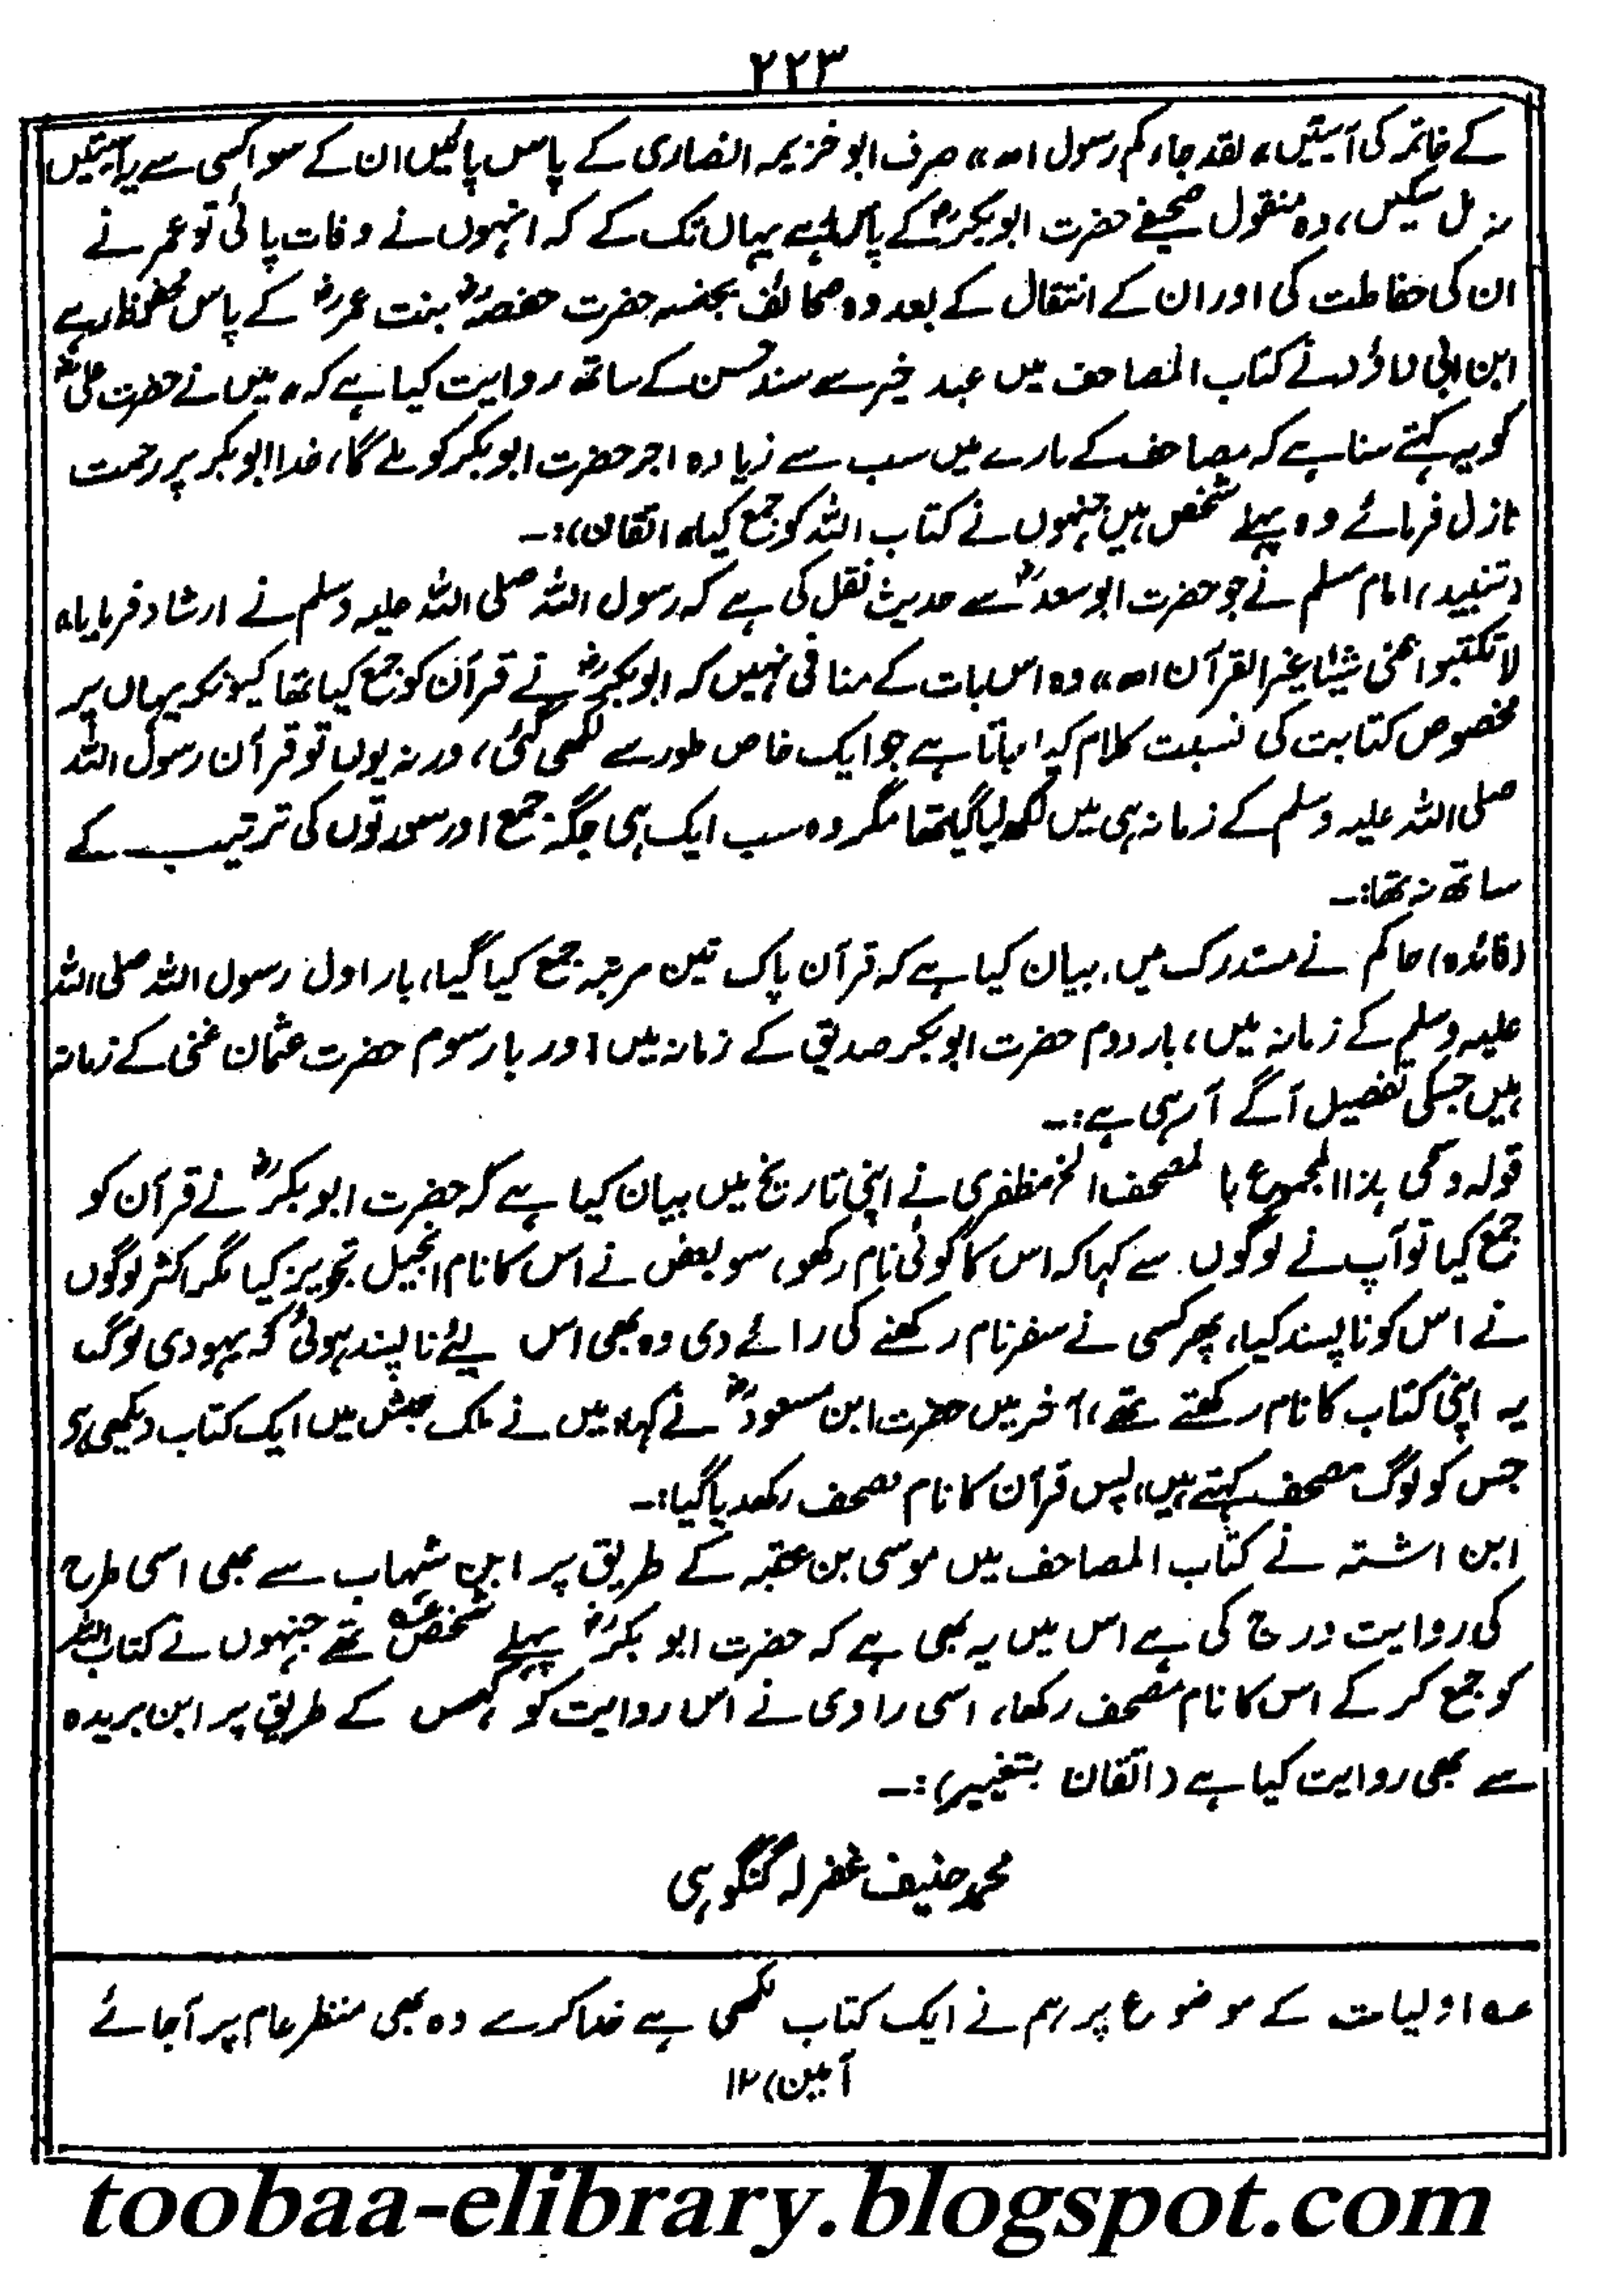 ۲۲۳
کے خاتمہ کی آیتیں «لقد جاءکم رسول اھ» صرف ابو خزیمہ انصاری کے پاس پائیں ان کے سوا کسی سے یہ آیتیں
نہ مل سکیں، وہ منقول صحیفے حضرت ابوبکرؓ کے پاس رہے یہاں تک کے کہ انہوں نے وفات پائی تو عمر نے
ان کی حفاظت کی اور ان کے انتقال کے بعد وہ صحائف بجنسہ حضرت حفصہؓ بنت عمرؓ کے پاس محفوظ رہے
ابن ابی داؤد نے کتاب المصاحف میں عبد خیر سے سند حسن کے ساتھ روایت کیا ہے کہ «میں نے حضرت علیؓ
کو یہ کہتے سنا ہے کہ مصاحف کے بارے میں سب سے زیادہ اجر حضرت ابوبکر کو ملے گا، خدا ابوبکر پر رحمت
نازل فرمائے وہ پہلے شخص ہیں جنہوں نے کتاب اللہ کو جمع کیا» (اتقان):۔
(تنبیہ) امام مسلم نے جو حضرت ابوسعدؓ سے حدیث نقل کی ہے کہ رسول اللہ صلی اللہ علیہ وسلم نے ارشاد فرمایا «
لا تکتبوا عنی شیئا غیر القرآن اھ» وہ اس بات کے منافی نہیں کہ ابوبکرؓ نے قرآن کو جمع کیا تھا کیونکہ یہاں پر
مخصوص کتابت کی نسبت کلام کیا جاتا ہے جو ایک خاص طور سے لکھی گئی، ورنہ یوں تو قرآن رسول اللہ
صلی اللہ علیہ وسلم کے زمانہ ہی میں لکھ لیا گیا تھا مگر وہ سب ایک ہی جگہ جمع اور سورتوں کی ترتیب کے
ساتھ نہ تھا:۔
(فائدہ) حاکم نے مستدرک میں بیان کیا ہے کہ قرآن پاک تین مرتبہ جمع کیا گیا، بار اول رسول اللہ صلی اللہ
علیہ وسلم کے زمانہ میں، بار دوم حضرت ابوبکر صدیق کے زمانہ میں اور بار سوم حضرت عثمان غنی کے زمانہ
میں جسکی تفصیل آگے آ رہی ہے:۔
قولہ وسمی ہذا المجموع با لمصحف الخ مظفری نے اپنی تاریخ میں بیان کیا ہے کہ حضرت ابوبکرؓ نے قرآن کو
جمع کیا تو آپ نے لوگوں سے کہا کہ اس کا کوئی نام رکھو، سو بعض نے اس کا نام انجیل تجویز کیا مگر اکثر لوگوں
نے اس کو ناپسند کیا، پھر کسی نے سفر نام رکھنے کی رائے دی وہ بھی اس لیئے ناپسند ہوئی کہ یہودی لوگ
یہ اپنی کتاب کا نام رکھتے تھے، آخر میں حضرت ابن مسعودؓ نے کہا «میں نے ملک حبش میں ایک کتاب دیکھی ہے
جس کو لوگ مصحف کہتے ہیں، پس قرآن کا نام مصحف رکھدیا گیا:۔
ابن اشتہ نے کتاب المصاحف میں موسی بن عقبہ کے طریق پر ابن شہاب سے بھی اسی طرح
کی روایت درج کی ہے اس میں یہ بھی ہے کہ حضرت ابو بکرؓ پہلے شخص عہ تھے جنہوں نے کتاب اللہ
کو جمع کر کے اس کا نام مصحف رکھا، اسی راوی نے اس روایت کو کہمس کے طریق پر ابن بریدہ
سے بھی روایت کیا ہے (اتقان بتغییر):۔
محمد حنیف غفرلہ گنگوہی
عہ اولیات کے موضوع پر ہم نے ایک کتاب لکھی ہے خدا کرے وہ بھی منظر عام پر آجائے
آمین) ۱۲
toobaa-elibrary.blogspot.com